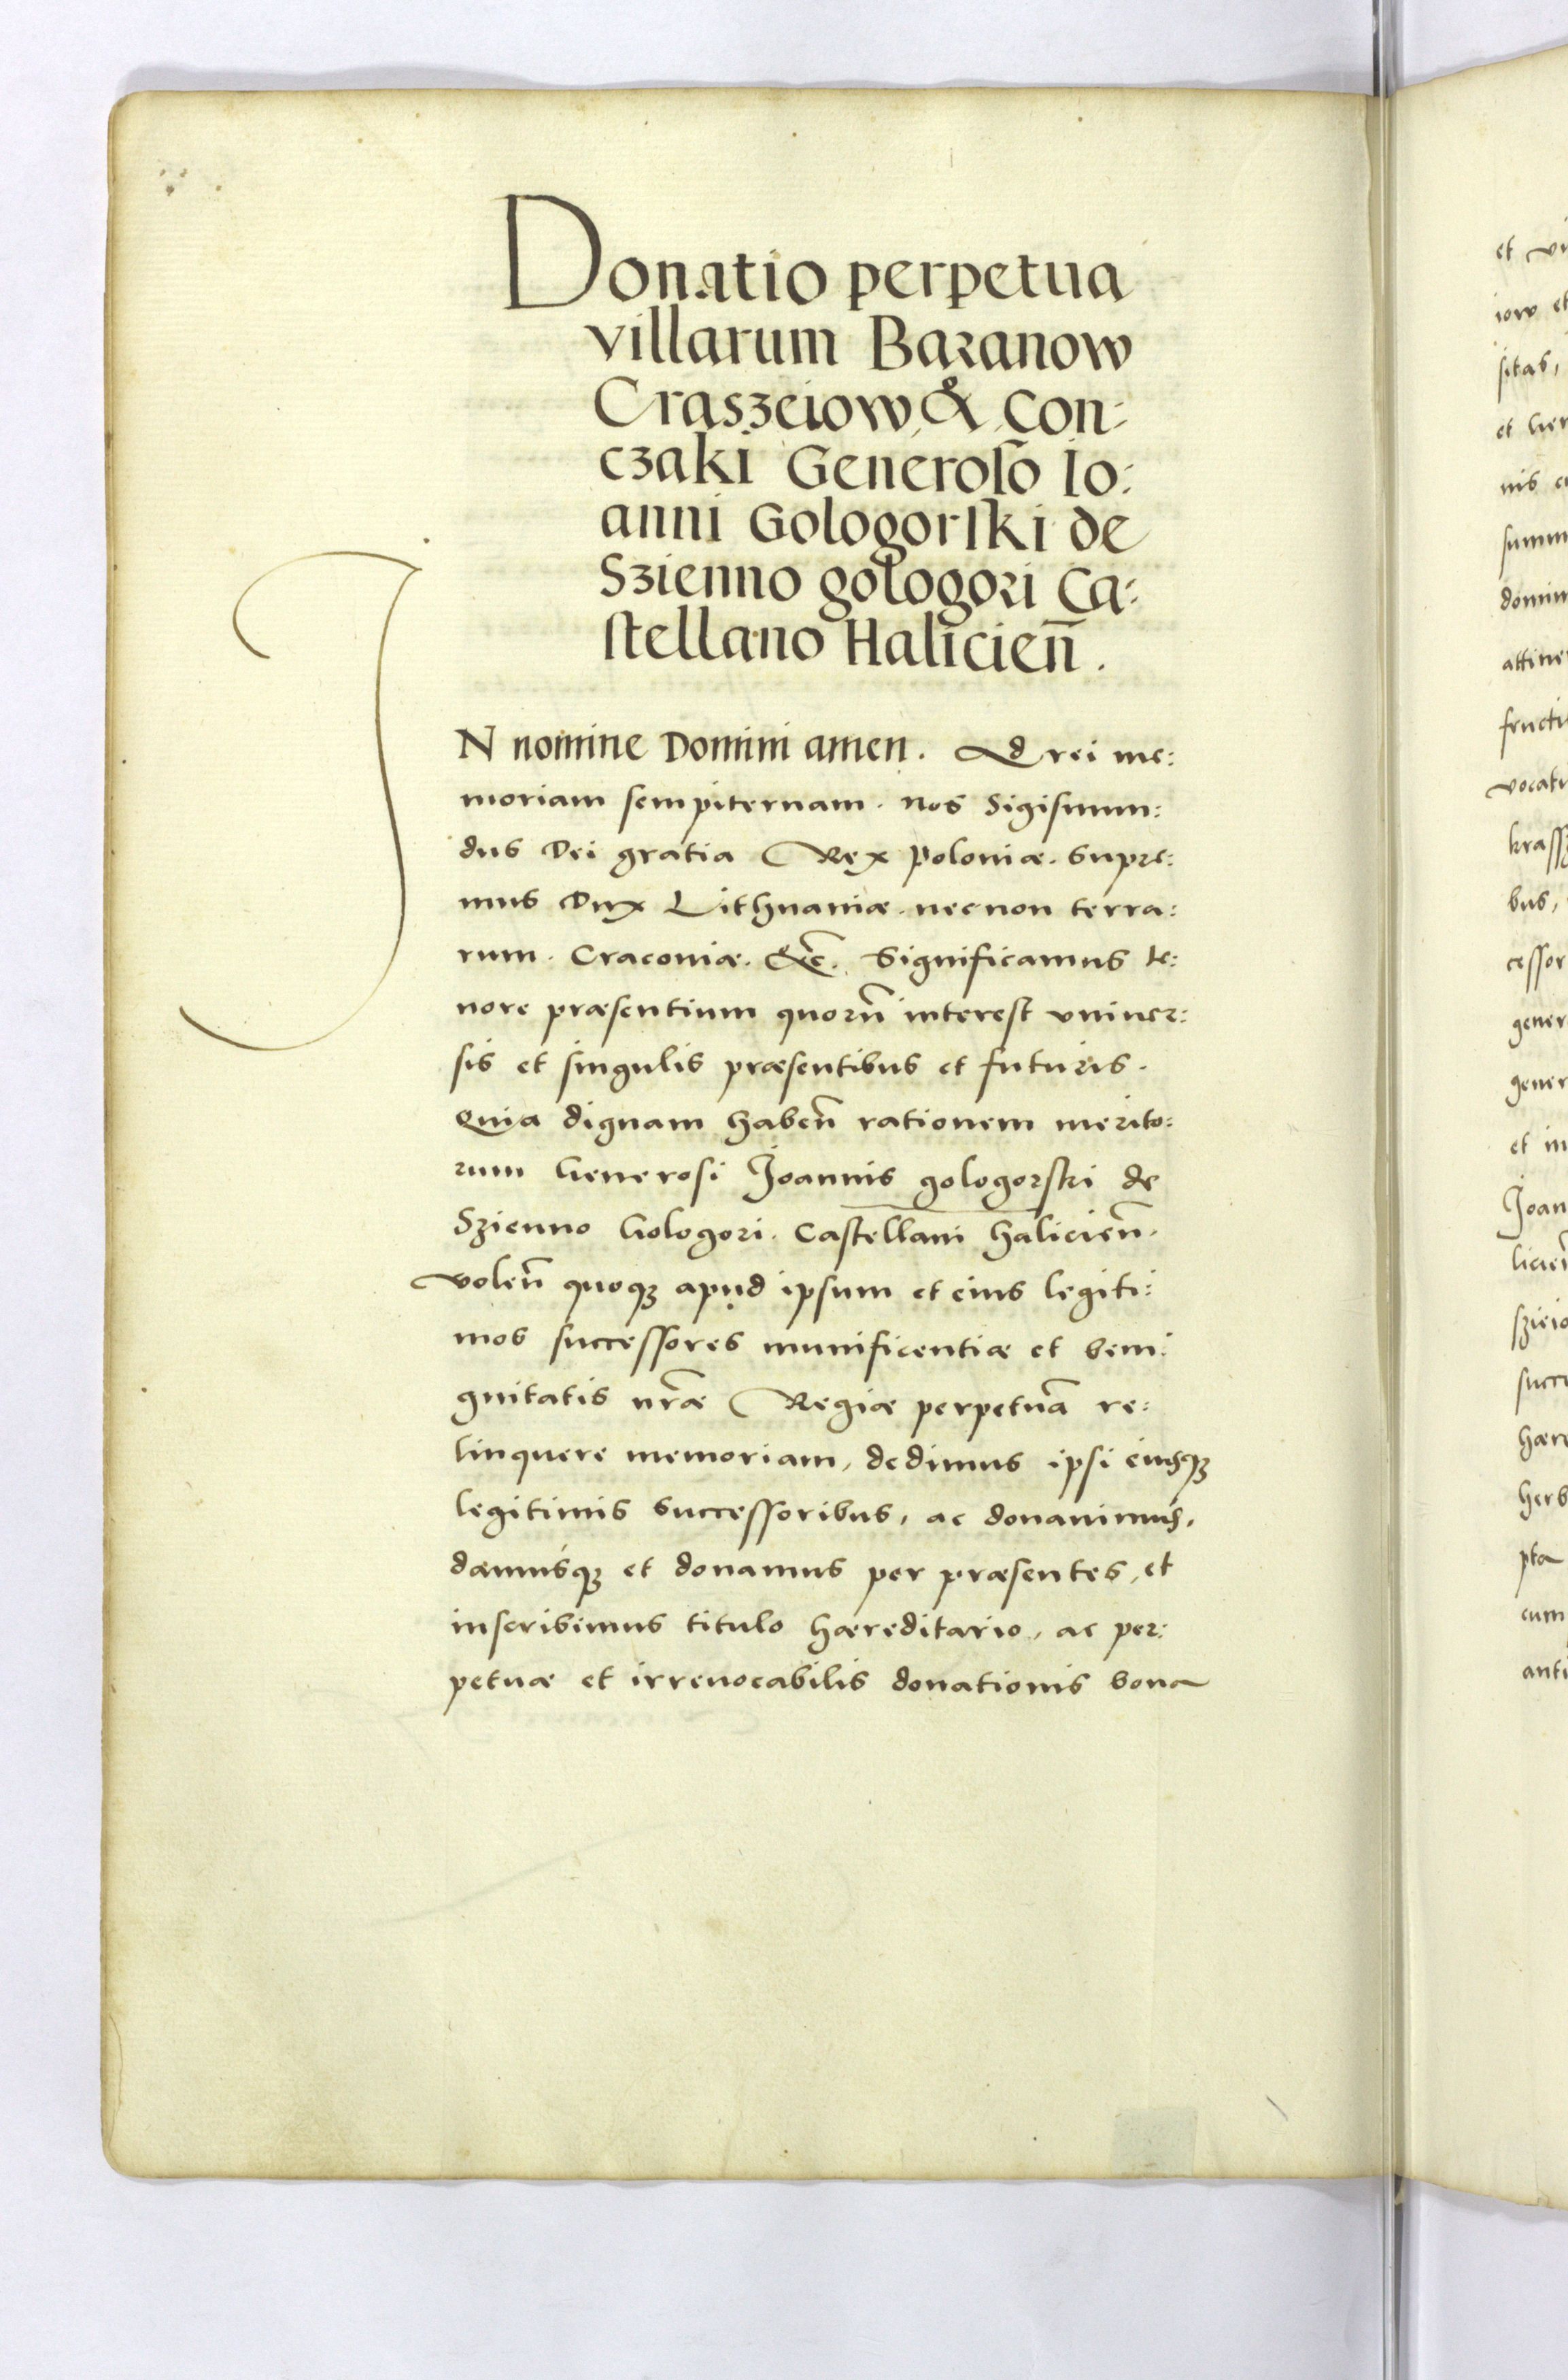 Donatio perpetua
villarum Baranow
Craszciow & Con:
czaki Generoso Io:
anni Gologorski de
Szienno gologori Ca:
stellano Halicień.
IN nomine Domini amen. Ad rei me:
moriam sempiternam. Nos Sigismun:
dus Dei gratia Rex Poloniæ. Supre:
mus Dux Lithuaniæ. necnon terra:
rum. Cracoviæ. &c̄. Significamus te:
nore præsentium quorū interest univer:
sis et singulis præsentibus et futuris.
Quia dignam habeñ rationem merito:
rum Generosi Joannis gologorski de
Szienno Gologori. Castellani Halicieñ.
voleñ quoqꝫ apud ipsum et eius legiti:
mos successores munificentiæ et beni:
gnitatis nr̄æ Regiæ perpetuā re:
linquere memoriam, dedimus ipsi eiusqꝫ
legitimis successoribus, ac donavimus,
damusqꝫ et donamus per præsentes, et
inscribimus titulo hæreditario, ac per:
petuæ et irrevocabilis donationis bona
et
iow et
sitas,
et
nis
summ
domin
attine
fructu
vocat
krassz
bus,
cessor
gener
gener
et in
Joan
licień
szcio
succe
hære
herb
pta
cum
anti